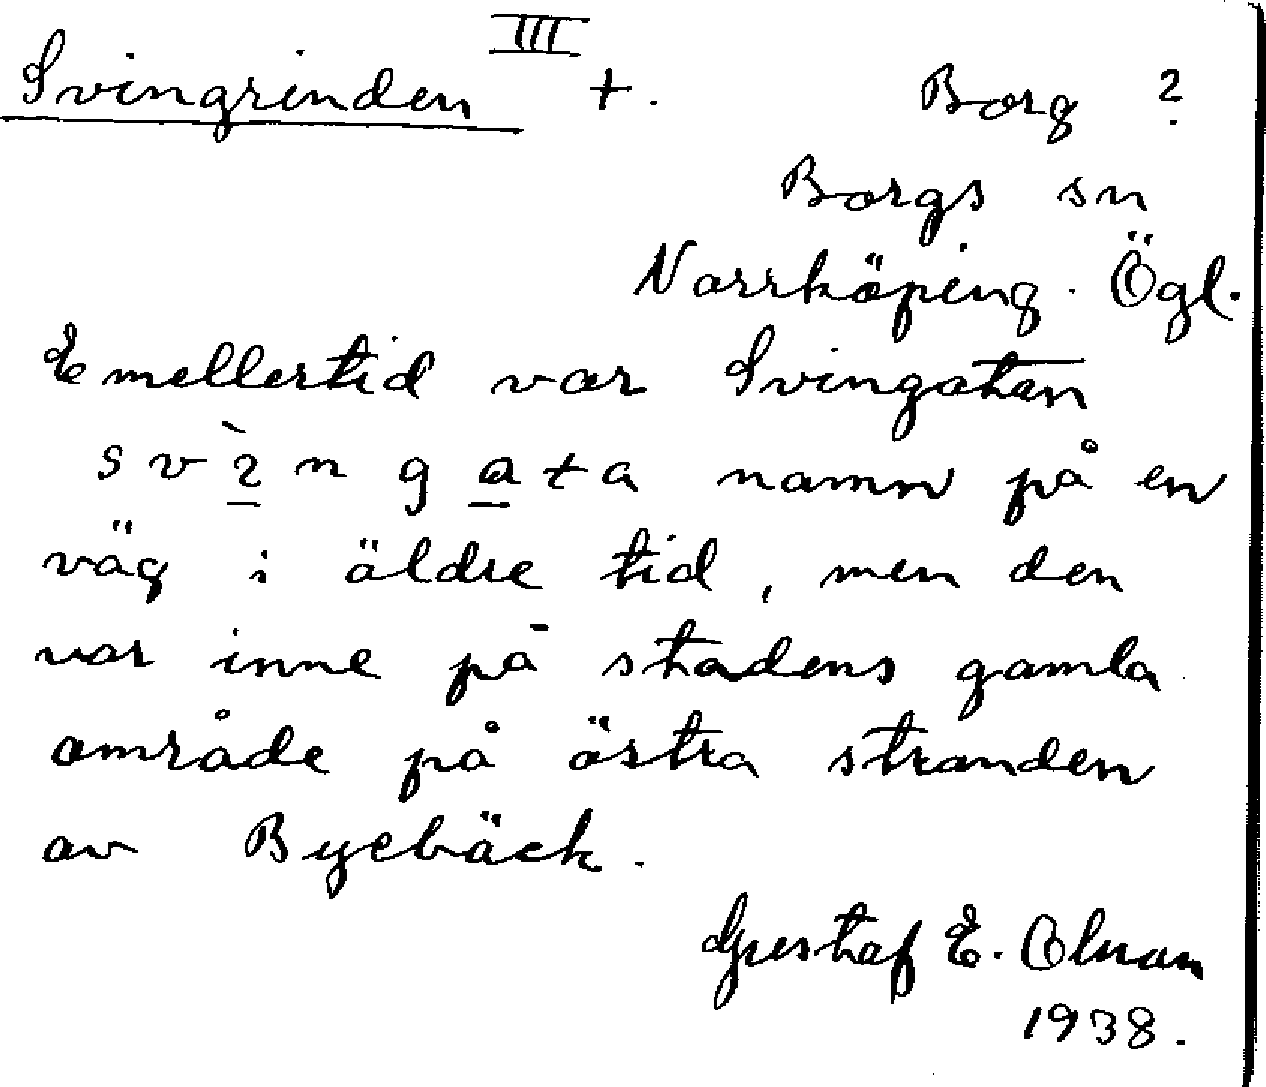 III
Svingrinden +. Borg ?
Borgs sn
Norrköping. Ögl.
Emellertid var Svingatan
svìngata namn på en
väg i äldre tid, men den
var inne på stadens gamla
område på östra stranden
av Byebäck.
Gustaf E.
1938.